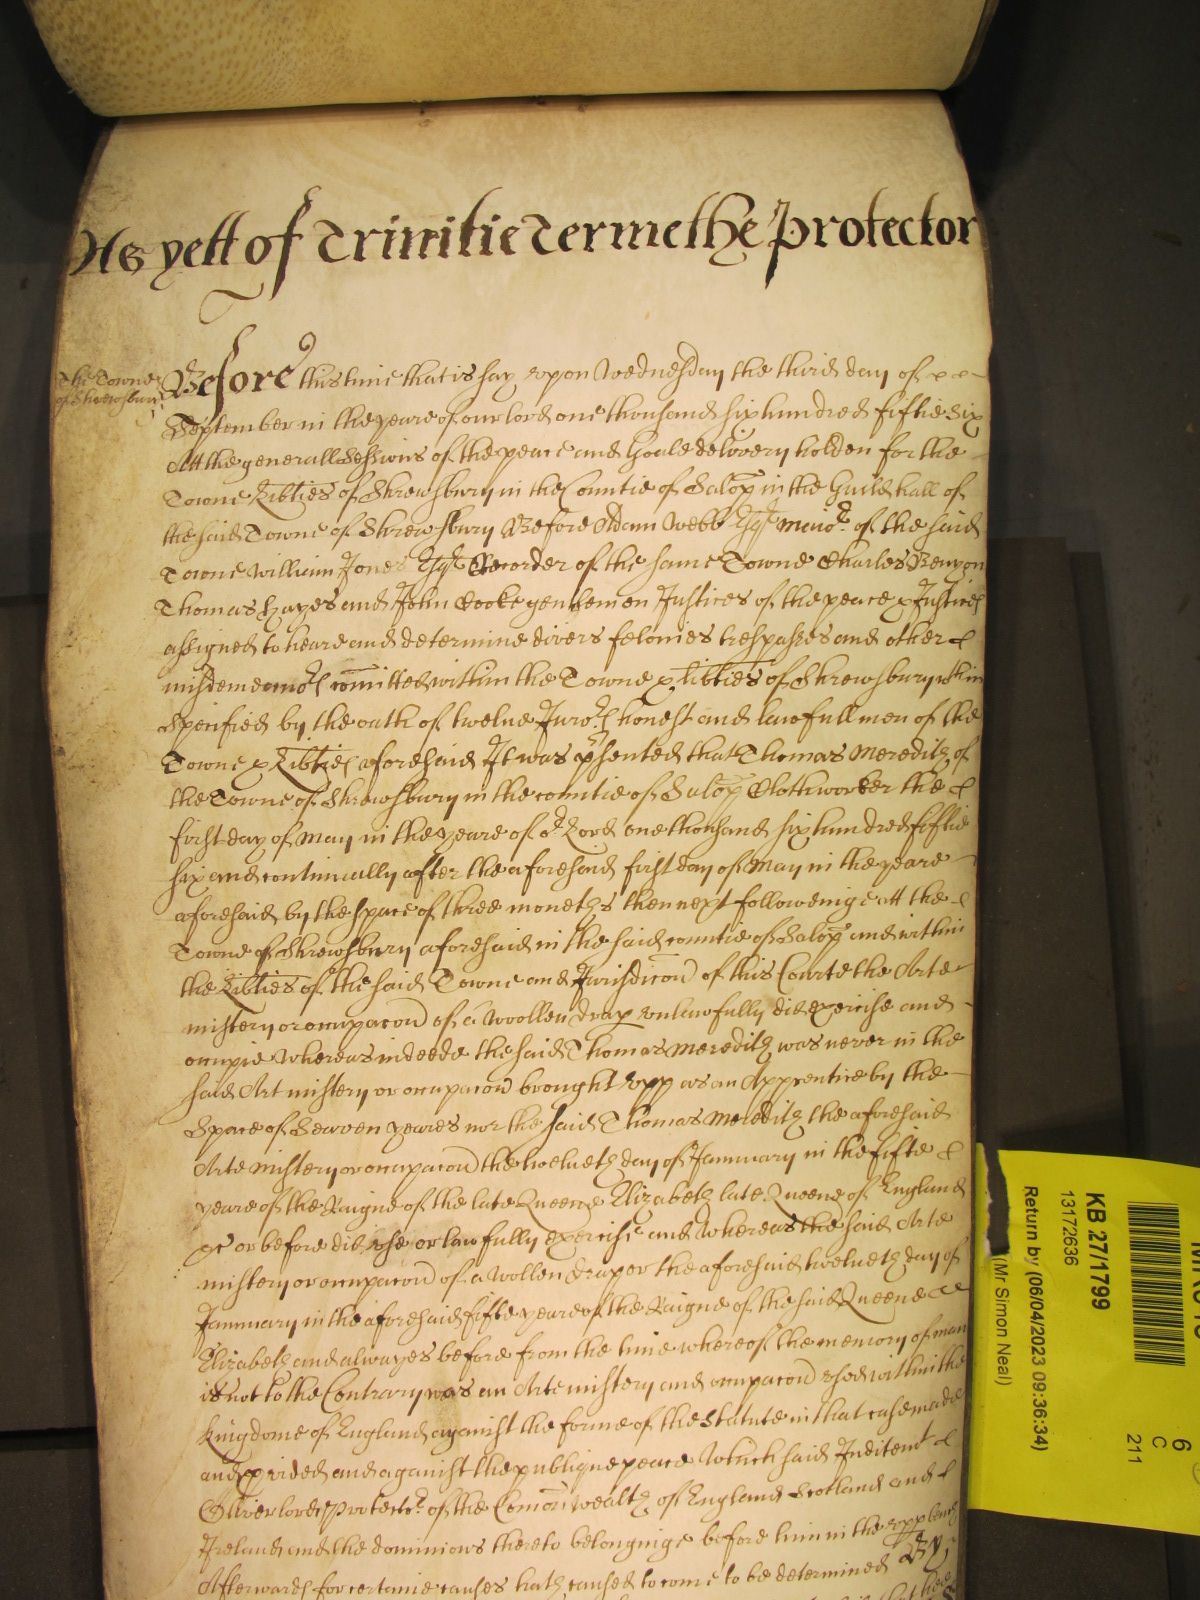 As yett of Trinitie Terme the Protector
The Towne
of Shrewsbury
Before this time that is say upon Wednesday the third day of
September in the yeare of our lord one thousand six hundred fiftie six
Att the generall Sessions of the peace and Goale delivery holden for the
Towne & Libties of Shrewsbury in the Countie of Salop in the Guildhall of
the said Towne of Shrewsbury Before Adam Webb Esqr Maior of the said
Towne William Jones Esqr Recorder of the same Towne Charles Benyon
Thomas Hayes and John Cooke gentlemen Justices of the peace & Justices
assigned to heare and determine divers felonies trespasses and other
misdemeanors comitted within the Towne & libties of Shrewsbury wthin
specified by the oath of twelve Jurors honest and lawfull men of the
Towne & Libties aforesaid It was psented that Thomas Meredith of
the Towne of Shrewsbury in the countie of Salop Clothworker the
first day of May in the yeare of or Lord one thousand six hundred fiftie
six and continually after the aforesaid first day of May in the yeare
aforesaid by the space of three moneths then next followeinge att the
Towne of Shrewsbury aforesaid in the said countie of Salop and within
the Libties of the said Towne and Jurisdicon of this Courte the Arte
mistery or occupacon of a Woollen drap unlawfully did exercise and
occupie Whereas indeede the said Thomas Meredith was never in the
said Art mistery or occupacon brought upp as an Apprentice by the
space of Seaven yeares nor the said Thomas Meredith the aforesaid
Arte mistery or occupacon the twelueth day of Jannuary in the fifte
yeare of the Raigne of the late Queene Elizabeth late Queene of England
&c or before did use or lawfully exercise and Whereas the said Arte
mistery or occupacon of a Wollen draper the aforesaid twelueth day of
Jannuary in the aforesaid fifte yeare of the Raigne of the said Queene
Elizabeth and alwayes before from the time whereof the memory of man
is not to the Contrary was an Arte mistery and occupacon used within the
kingdome of England against the forme of the Statute in that case made
and pvided and against the publique peace Which said Inditemt
Oliver lord Protector of the Comon wealth of England Scotland and
Ireland and the dominions thereto belonginge before him in the upp bench
Afterwards for certaine causes hath caused to come to be determined
KB 27/1799
13172636
Return by (06/04/2023 09:36:34)
(Mr Simon Neal)
6
C
211